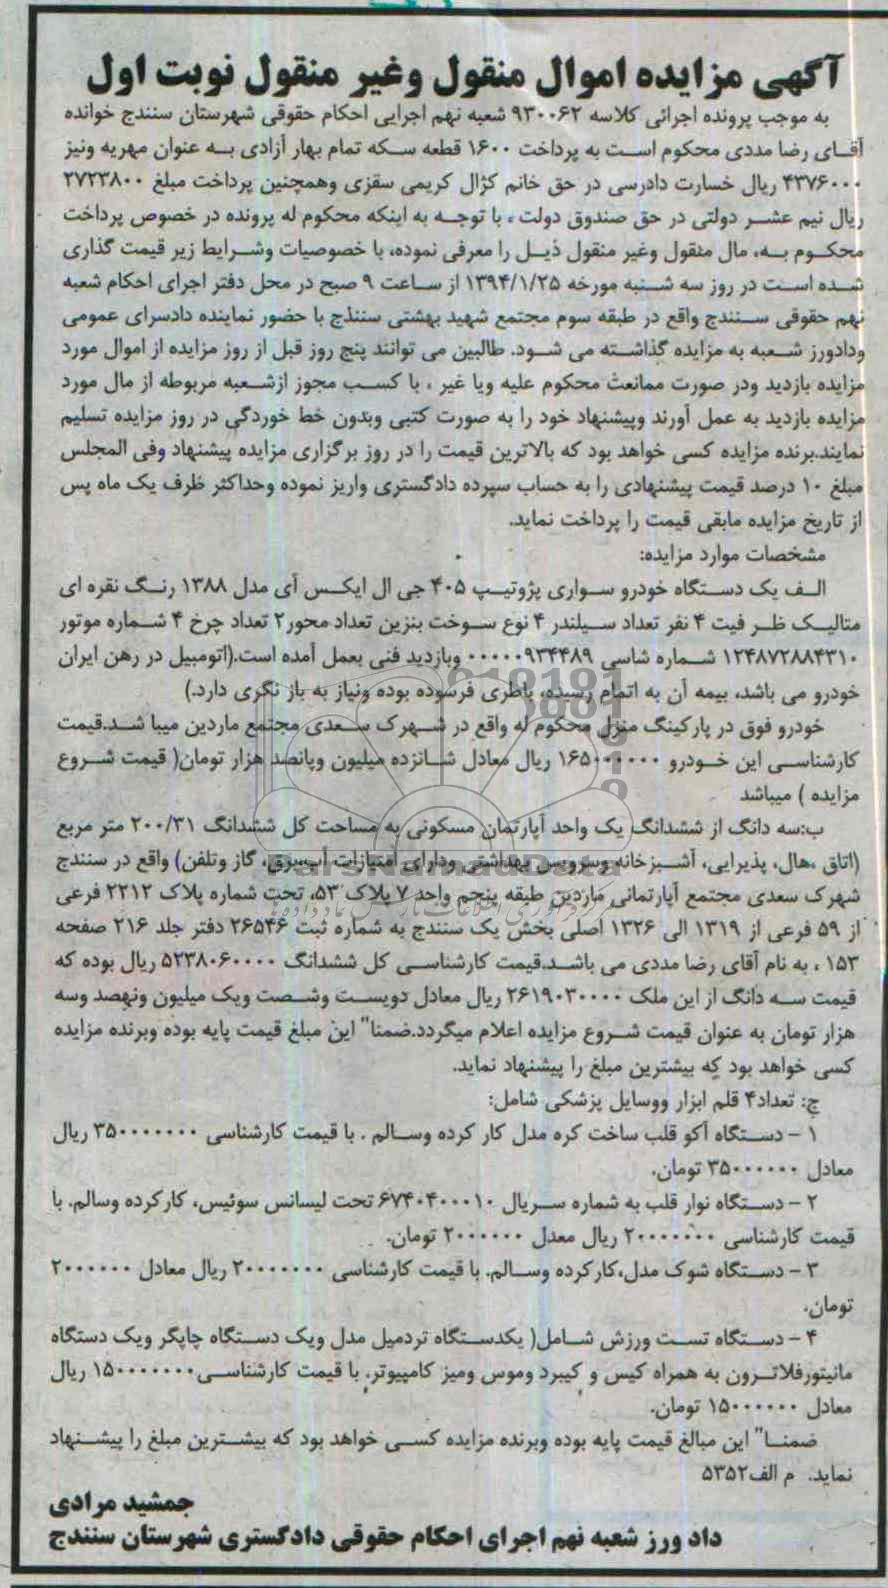 آگهی مزایده اموال منقول وغیر منقول نوبت اول
به موجب پرونده اجرائی کلاسه ۹۳۰۰۶۲ شعبه نهم اجرایی احکام حقوقی شهرستان سنندج خوانده
آقای رضا مددی محکوم است به پرداخت ۱۶۰۰ قطعه سکه تمام بهار آزادی به عنوان مهریه ونیز
۴۳۷۶۰۰۰ ریال خسارت دادرسی در حق خانم کژال کریمی سقزی وهمچنین پرداخت مبلغ ۲۷۲۳۸۰۰
ریال نیم عشر دولتی در حق صندوق دولت ، با توجه به اینکه محکوم له پرونده در خصوص پرداخت
محکوم به، مال منقول وغیر منقول ذیل را معرفی نموده، با خصوصیات وشرایط زیر قیمت گذاری
شده است در روز سه شنبه مورخه ۱۳۹۴/۱/۲۵ از ساعت ۹ صبح در محل دفتر اجرای احکام شعبه
نهم حقوقی سنندج واقع در طبقه سوم مجتمع شهید بهشتی سنندج با حضور نماینده دادسرای عمومی
ودادورز شعبه به مزایده گذاشته می شود. طالبین می توانند پنج روز قبل از روز مزایده از اموال مورد
مزایده بازدید ودر صورت ممانعت محکوم علیه ویا غیر ، با کسب مجوز ازشعبه مربوطه از مال مورد
مزایده بازدید به عمل آورند وپیشنهاد خود را به صورت کتبی وبدون خط خوردگی در روز مزایده تسلیم
نمایند.برنده مزایده کسی خواهد بود که بالاترین قیمت را در روز برگزاری مزایده پیشنهاد وفی المجلس
مبلغ ۱۰ درصد قیمت پیشنهادی را به حساب سپرده دادگستری واریز نموده وحداکثر ظرف یک ماه پس
از تاریخ مزایده مابقی قیمت را پرداخت نماید.
مشخصات موارد مزایده:
الف یک دستگاه خودرو سواری پژوتیپ ۴۰۵ جی ال ایکس آی مدل ۱۳۸۸ رنگ نقره ای
متالیک ظر فیت ۴ نفر تعداد سیلندر ۴ نوع سوخت بنزین تعداد محور۲ تعداد چرخ ۴ شماره موتور
۱۲۴۸۷۲۸۸۴۳۱۰ شماره شاسی ۰۰۰۰۰۹۳۴۴۸۹ وبازدید فنی بعمل آمده است.(اتومبیل در رهن ایران
خودرو می باشد، بیمه آن به اتمام رسیده، باطری فرسوده بوده ونیاز به باز نگری دارد.)
خودرو فوق در پارکینگ منزل محکوم له واقع در شهرک سعدی مجتمع ماردین میبا شد.قیمت
کارشناسی این خودرو ۱۶۵۰۰۰۰۰۰ ریال معادل شانزده میلیون وپانصد هزار تومان( قیمت شروع
مزایده ) میباشد
ب:سه دانگ از ششدانگ یک واحد آپارتمان مسکونی به مساحت کل ششدانگ ۲۰۰/۳۱ متر مربع
(اتاق ،هال، پذیرایی، آشپزخانه وسرویس بهداشتی ودارای امتیازات آب،برق، گاز وتلفن) واقع در سنندج
ParsNamadData
شهرک سعدی مجتمع آپارتمانی ماردین طبقه پنجم واحد ۷ پلاک ۵۳، تحت شماره پلاک ۲۲۱۲ فرعی
از ۵۹ فرعی از ۱۳۱۹ الی ۱۳۲۶ اصلی بخش یک سنندج به شماره ثبت ۲۶۵۴۶ دفتر جلد ۲۱۶ صفحه
۱۵۳ ، به نام آقای رضا مددی می باشد.قیمت کارشناسی کل ششدانگ ۵۲۳۸۰۶۰۰۰۰ ریال بوده که
قیمت سه دانگ از این ملک ۲۶۱۹۰۳۰۰۰۰ ریال معادل دویست وشصت ویک میلیون ونهصد وسه
هزار تومان به عنوان قیمت شروع مزایده اعلام میگردد.ضمنا" این مبلغ قیمت پایه بوده وبرنده مزایده
کسی خواهد بود که بیشترین مبلغ را پیشنهاد نماید.
ج: تعداد۴ قلم ابزار ووسایل پزشکی شامل:
۱ – دستگاه آکو قلب ساخت کره مدل کار کرده وسالم . با قیمت کارشناسی ۳۵۰۰۰۰۰۰۰ ریال
معادل ۳۵۰۰۰۰۰۰ تومان.
۲ – دستگاه نوار قلب به شماره سریال ۶۷۴۰۴۰۰۰۱۰ تحت لیسانس سوئیس، کارکرده وسالم. با
قیمت کارشناسی ۲۰۰۰۰۰۰۰ ریال معدل ۲۰۰۰۰۰۰ تومان.
۳ – دستگاه شوک مدل،کارکرده وسالم. با قیمت کارشناسی ۲۰۰۰۰۰۰۰ ریال معادل ۲۰۰۰۰۰۰
تومان.
۴ – دستگاه تست ورزش شامل( یکدستگاه تردمیل مدل ویک دستگاه چاپگر ویک دستگاه
مانیتورفلاترون به همراه کیس و کیبرد وموس ومیز کامپیوتر. با قیمت کارشناسی۱۵۰۰۰۰۰۰۰ ریال
معادل ۱۵۰۰۰۰۰۰ تومان.
ضمنا" این مبالغ قیمت پایه بوده وبرنده مزایده کسی خواهد بود که بیشترین مبلغ را پیشنهاد
نماید. م الف۵۳۵۲
جمشید مرادی
داد ورز شعبه نهم اجرای احکام حقوقی دادگستری شهرستان سنندج